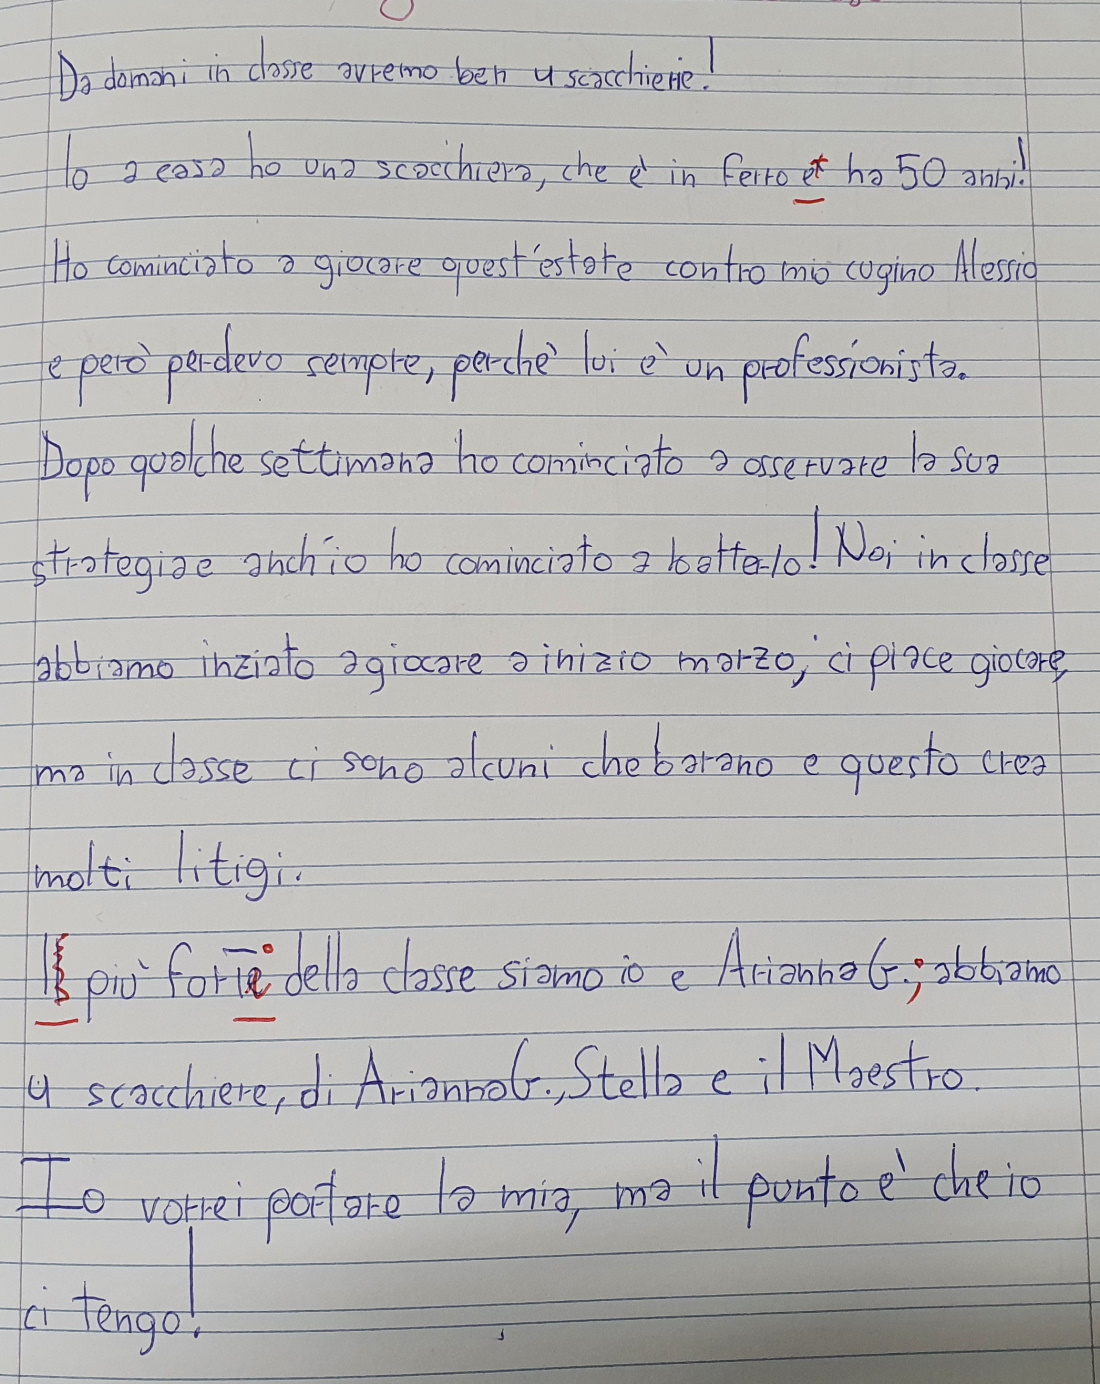 Da domani in classe avremo ben 4 scacchierie!
Io a casa ho una scacchiera, che è in ferro e ha 50 anni!
Ho cominciato a giocare quest'estate contro mio cugino Alessio
e però perdevo sempre, perchè lui è un professionista.
Dopo qualche settimana ho cominciato a osservare la sua
strategia e anch'io ho cominciato a batterlo! Noi in classe
abbiamo inziato a giocare a inizio marzo, ci piace giocare,
ma in classe ci sono alcuni che barano e questo crea
molti litigi.
I più forti della classe siamo io e Arianna G.; abbiamo
4 scacchiere, di Arianna G., Stella e il Maestro.
Io vorrei portare la mia, ma il punto è che io
ci tengo!